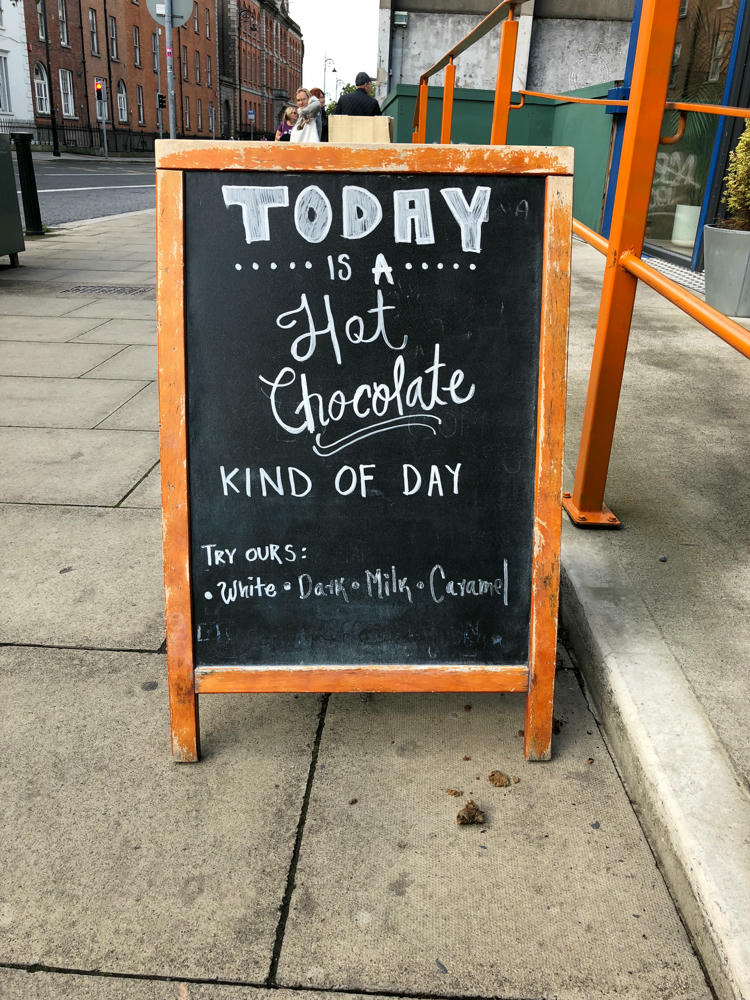 TODAY
IS A
Hot
Chocolate
KIND OF DAY
TRY OURS:
• White • Dark • Milk • Caramel